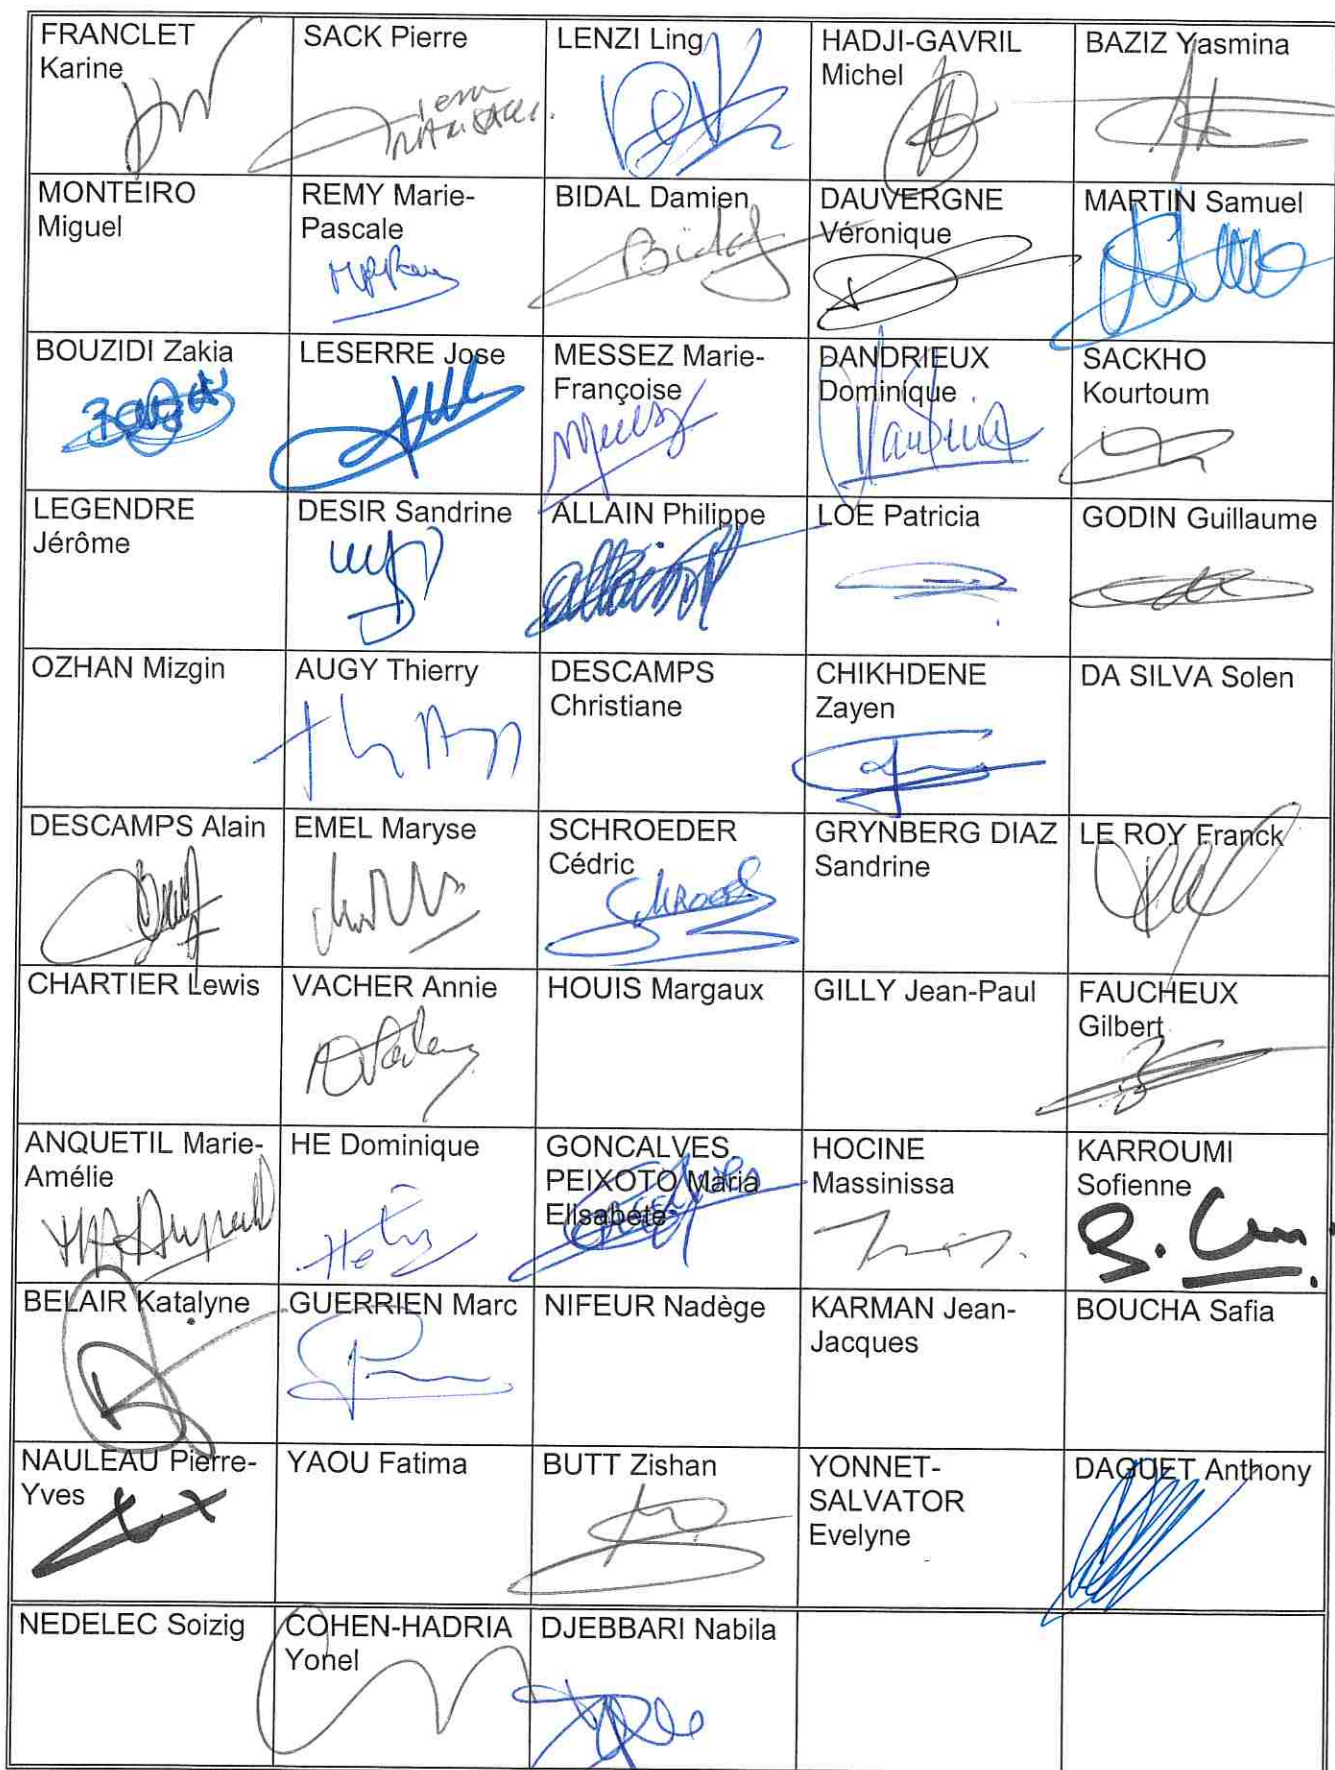 FRANCLET
Karine
SACK Pierre
LENZI Ling
HADJI-GAVRIL
Michel
BAZIZ Yasmina
MONTEIRO
Miguel
REMY Marie-
Pascale
BIDAL Damien
Bidal
DAUVERGNE
Véronique
MARTIN Samuel
BOUZIDI Zakia
LESERRE Jose
MESSEZ Marie-
Françoise
DANDRIEUX
Dominique
SACKHO
Kourtoum
LEGENDRE
Jérôme
DESIR Sandrine
ALLAIN Philippe
LOE Patricia
GODIN Guillaume
OZHAN Mizgin
AUGY Thierry
DESCAMPS
Christiane
CHIKHDENE
Zayen
DA SILVA Solen
DESCAMPS Alain
EMEL Maryse
SCHROEDER
Cédric
GRYNBERG DIAZ
Sandrine
LE ROY Franck
CHARTIER Lewis
VACHER Annie
HOUIS Margaux
GILLY Jean-Paul
FAUCHEUX
Gilbert
ANQUETIL Marie-
Amélie
HE Dominique
GONCALVES
PEIXOTO Maria
Elisabete
HOCINE
Massinissa
KARROUMI
Sofienne
BELAIR Katalyne
GUERRIEN Marc
NIFEUR Nadège
KARMAN Jean-
Jacques
BOUCHA Safia
NAULEAU Pierre-
Yves
YAOU Fatima
BUTT Zishan
YONNET-
SALVATOR
Evelyne
DAGUET Anthony
NEDELEC Soizig
COHEN-HADRIA
Yonel
DJEBBARI Nabila